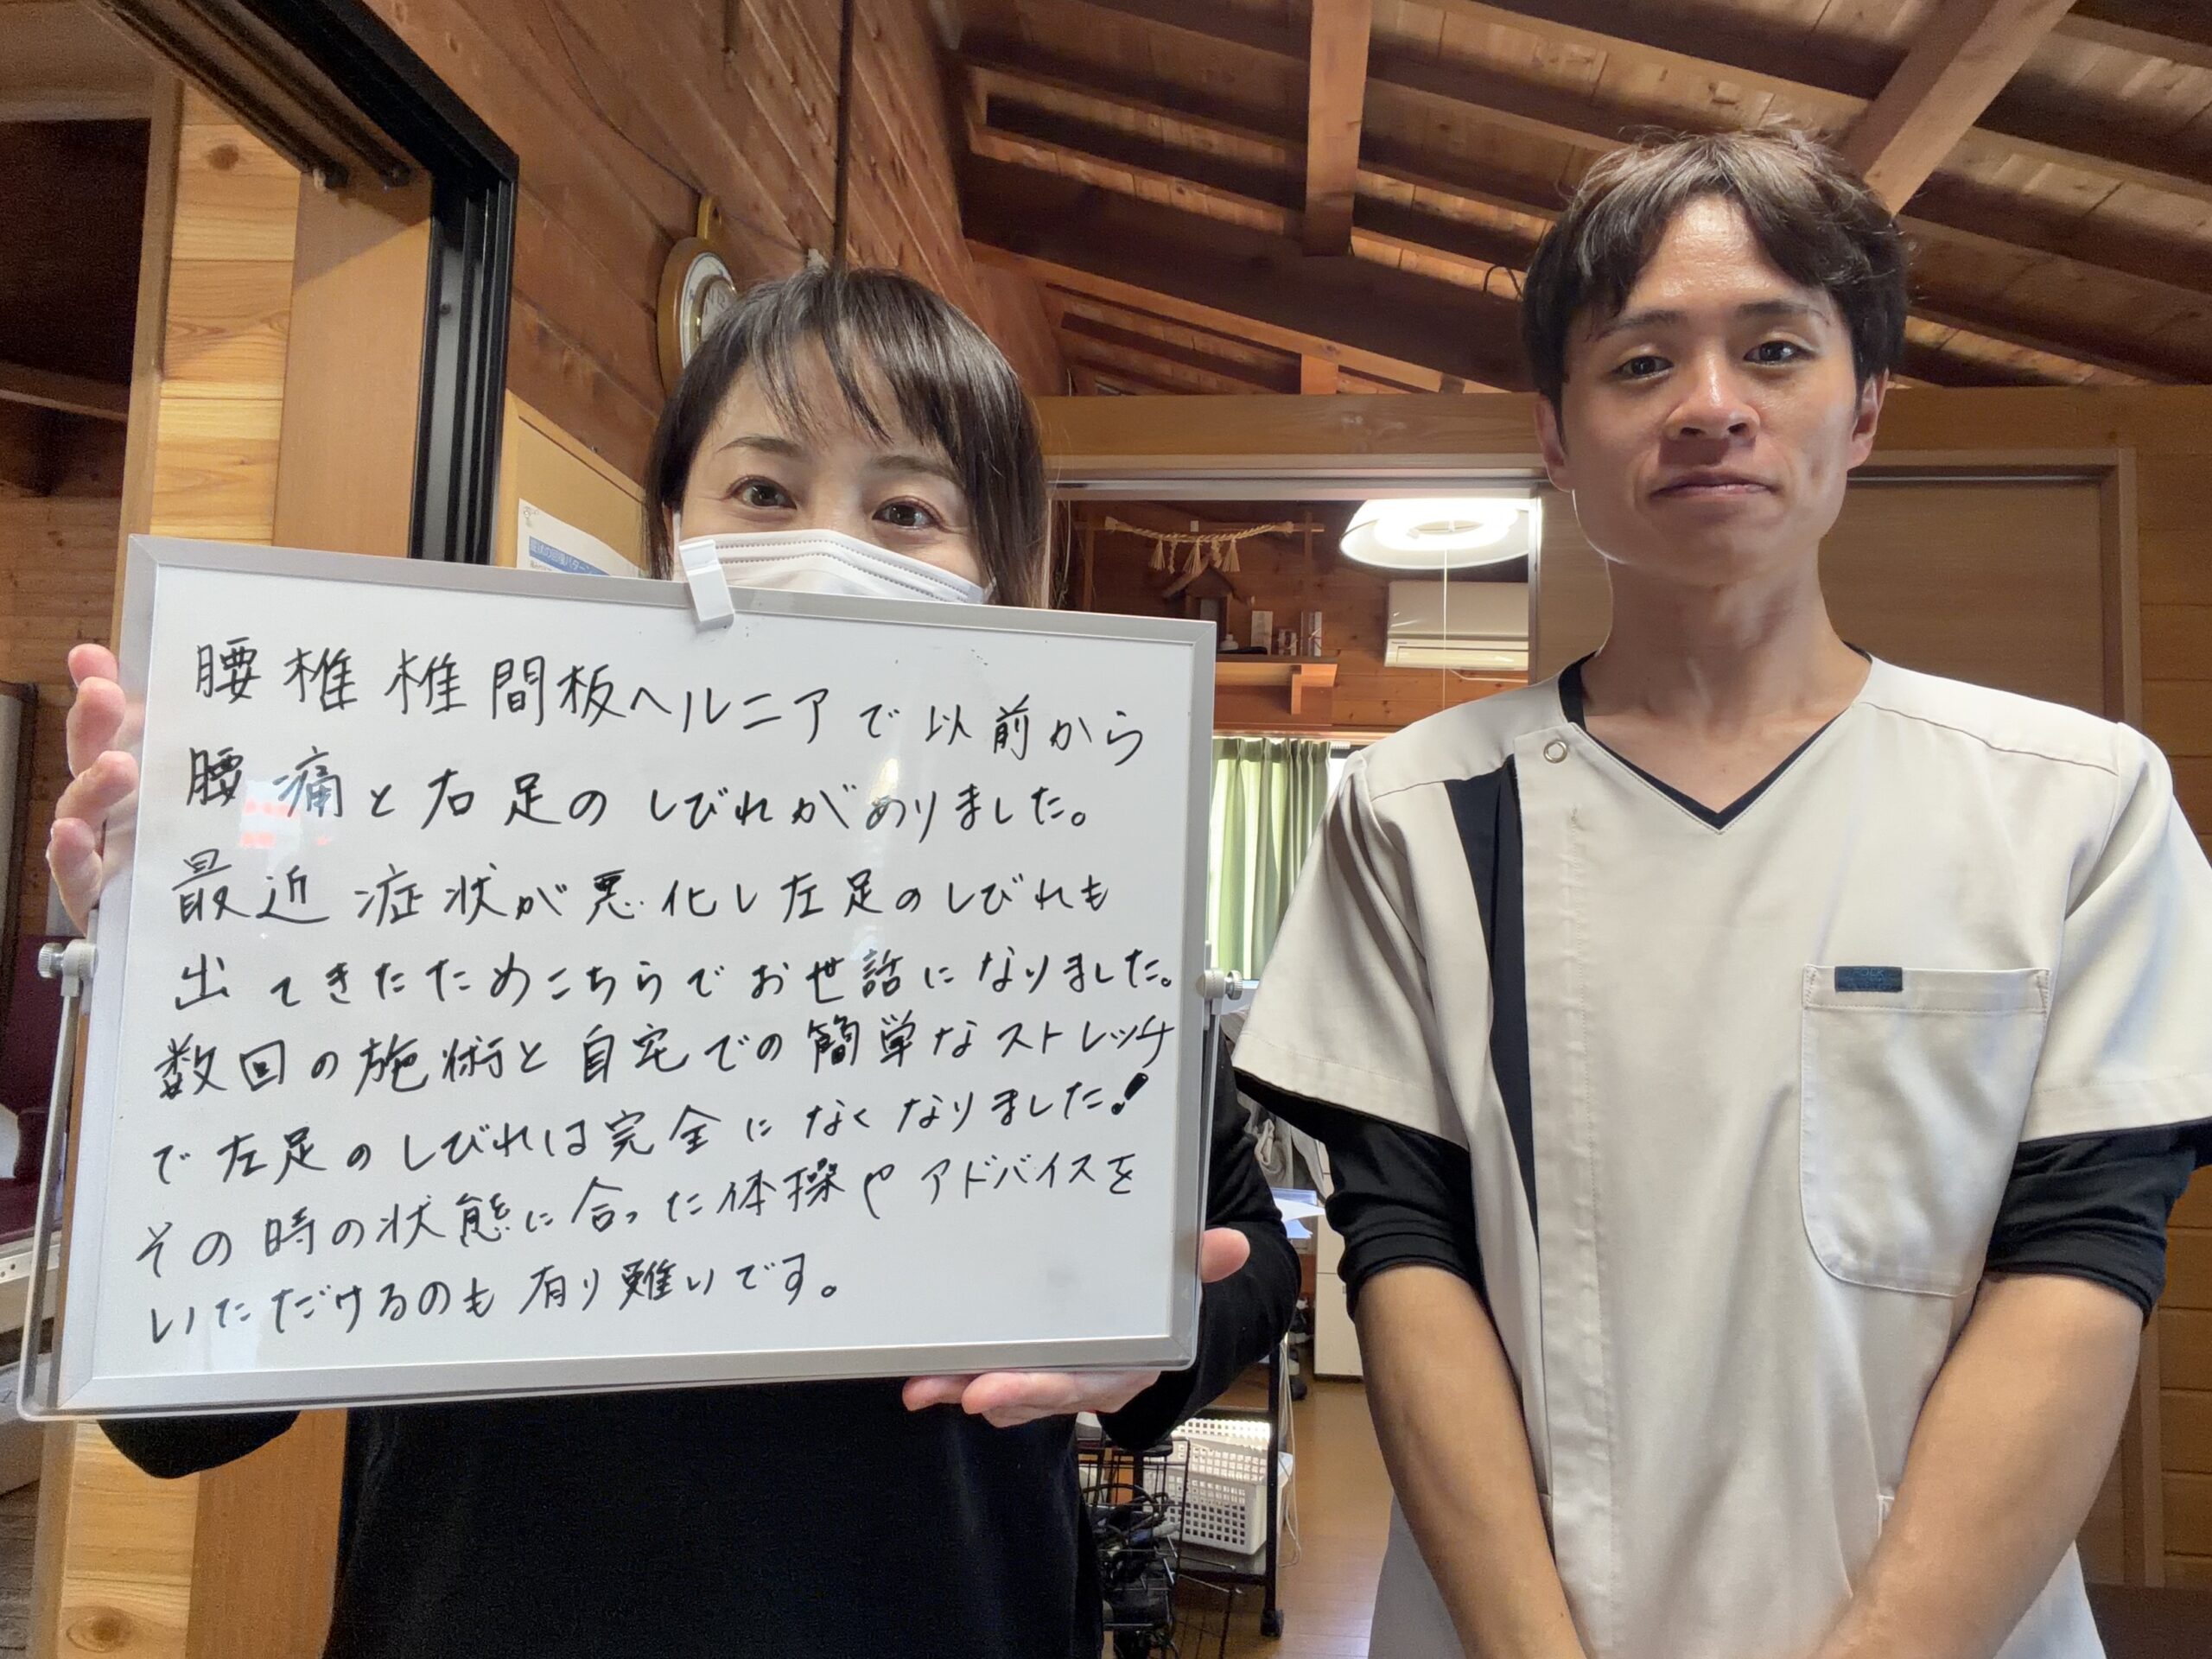 腰椎椎間板ヘルニアで以前から
腰痛と右足のしびれがありました。
最近症状が悪化し左足のしびれも
出てきたためこちらでお世話になりました。
数回の施術と自宅での簡単なストレッチ
で左足のしびれは完全になくなりました！
その時の状態に合った体操やアドバイスを
いただけるのも有り難いです。